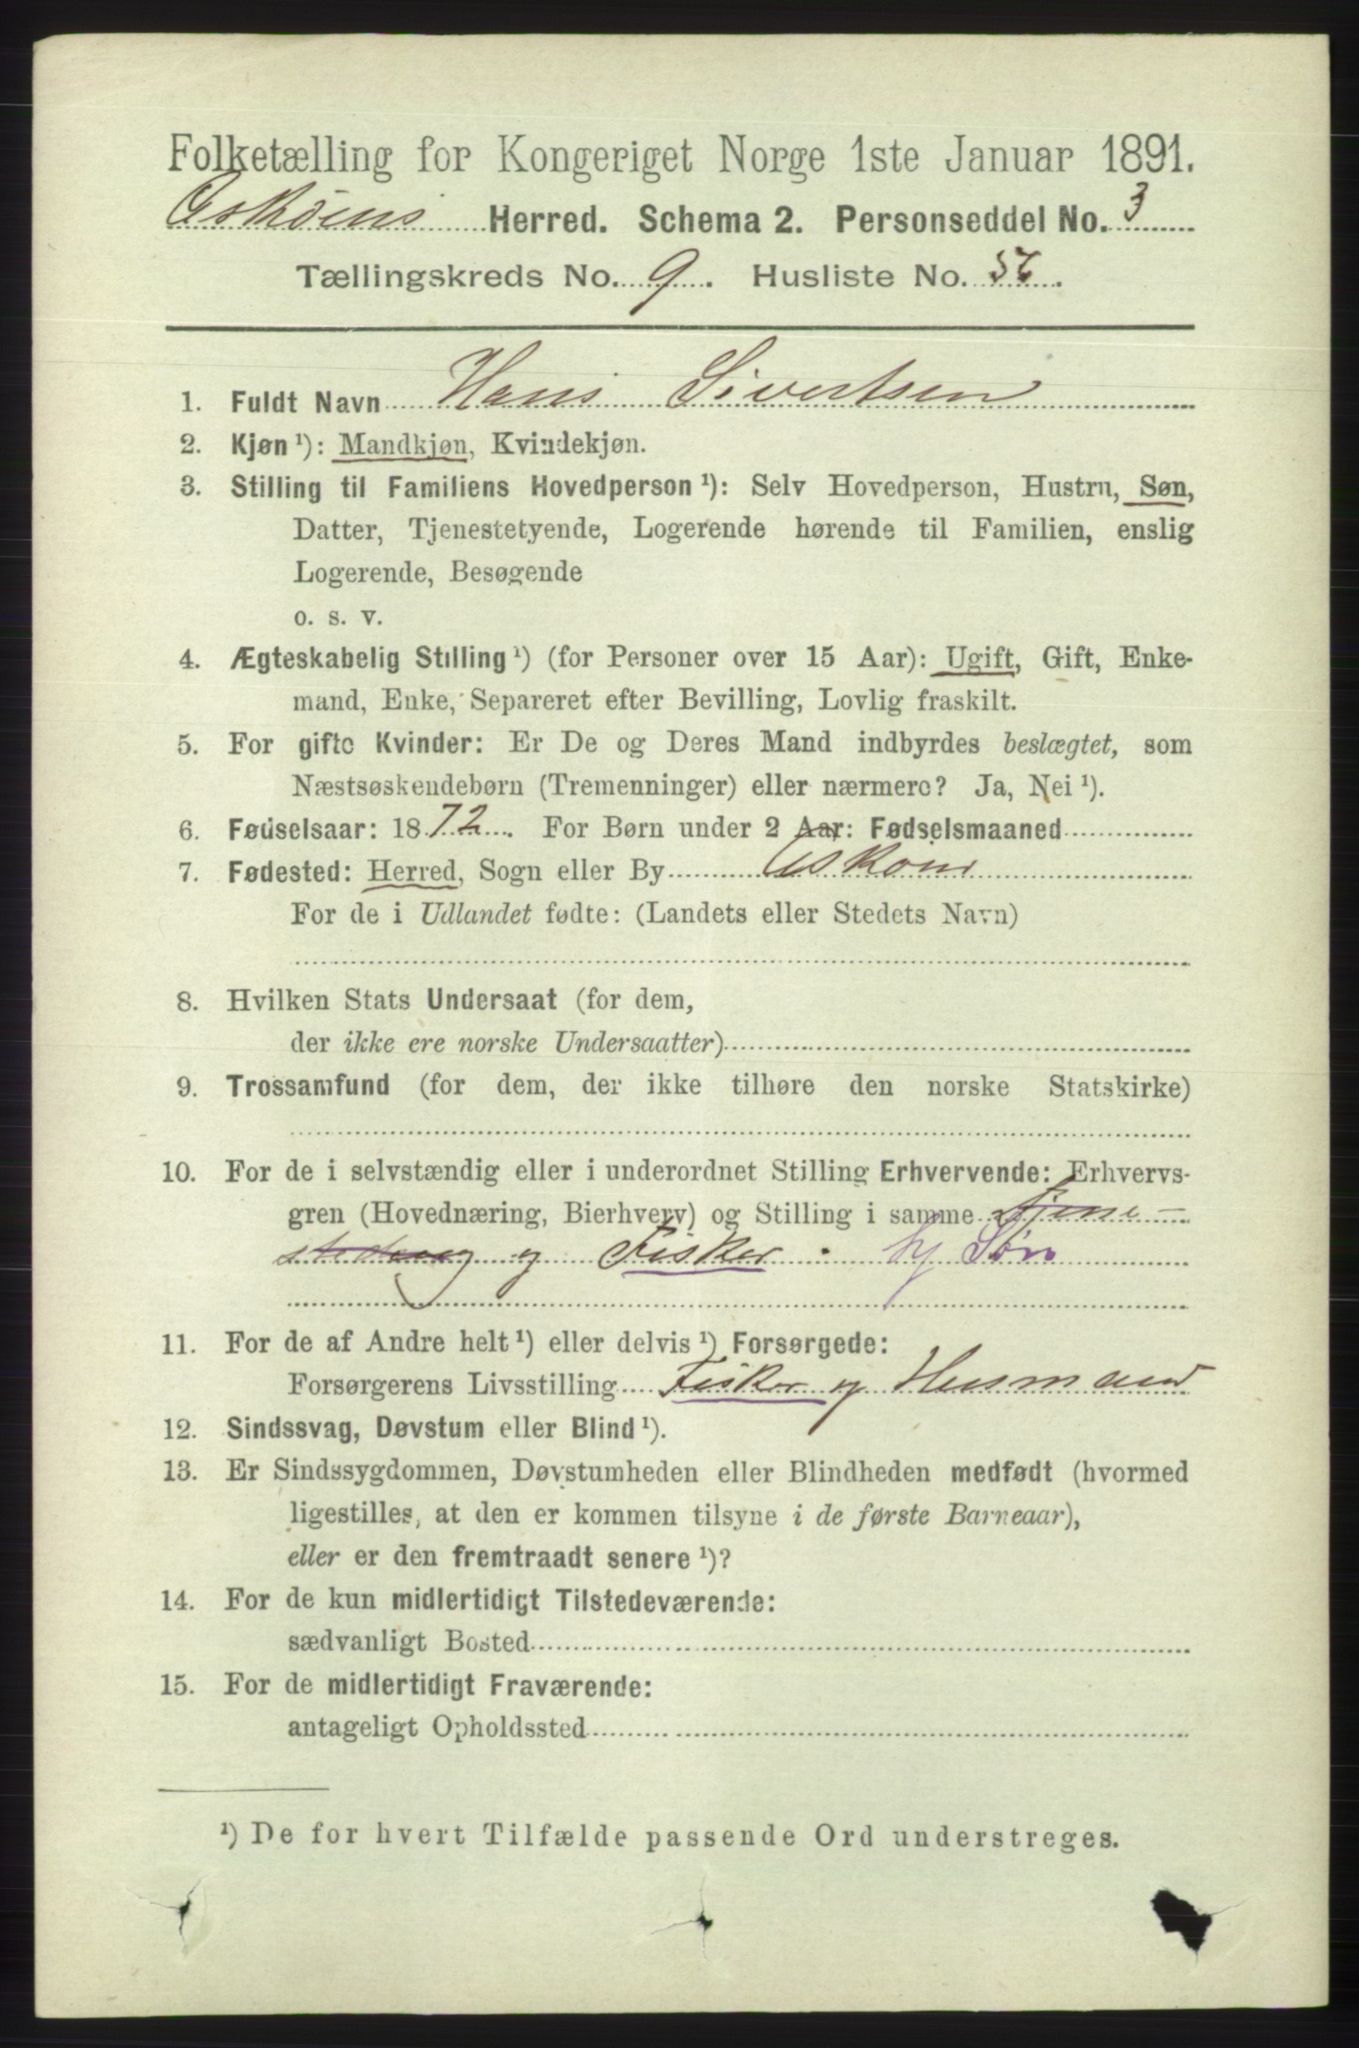 Folketælling for Kongeriget Norge 1ste Januar 1891.
Askøens Herred. Schema 2. Personseddel No. 3
Tællingskreds No. 9. Husliste No. 56.
1. Fuldt Navn Hans Sivertsen
2. Kjøn ¹): Mandkjøn, Kvindekjøn.
3. Stilling til Familiens Hovedperson ¹): Selv Hovedperson, Hustru, Søn,
Datter, Tjenestetyende, Logerende hørende til Familien, enslig
Logerende, Besøgende
o. s. v.
4. Ægteskabelig Stilling ¹) (for Personer over 15 Aar): Ugift, Gift, Enke-
mand, Enke, Separeret efter Bevilling, Lovlig fraskilt.
5. For gifte Kvinder: Er De og Deres Mand indbyrdes beslægtet, som
Næstsøskendebørn (Tremenninger) eller nærmere? Ja, Nei ¹).
6. Fødselsaar: 1872. For Børn under 2 Aar: Fødselsmaaned
7. Fødested: Herred, Sogn eller By Askøens
For de i Udlandet fødte: (Landets eller Stedets Navn)
8. Hvilken Stats Undersaat (for dem,
der ikke ere norske Undersaatter)
9. Trossamfund (for dem, der ikke tilhøre den norske Statskirke)
10. For de i selvstændig eller i underordnet Stilling Erhvervende: Erhvervs-
gren (Hovednæring, Bierhverv) og Stilling i samme Tjene-
og Fisker. hj Søn
11. For de af Andre helt ¹) eller delvis ¹) Forsørgede:
Forsørgerens Livsstilling Fisker og Husmand
12. Sindssvag, Døvstum eller Blind ¹).
13. Er Sindssygdommen, Døvstumheden eller Blindheden medfødt (hvormed
ligestilles, at den er kommen tilsyne i de første Barneaar),
eller er den fremtraadt senere ¹)?
14. For de kun midlertidigt Tilstedeværende:
sædvanligt Bosted
15. For de midlertidigt Fraværende:
antageligt Opholdssted
¹) De for hvert Tilfælde passende Ord understreges.